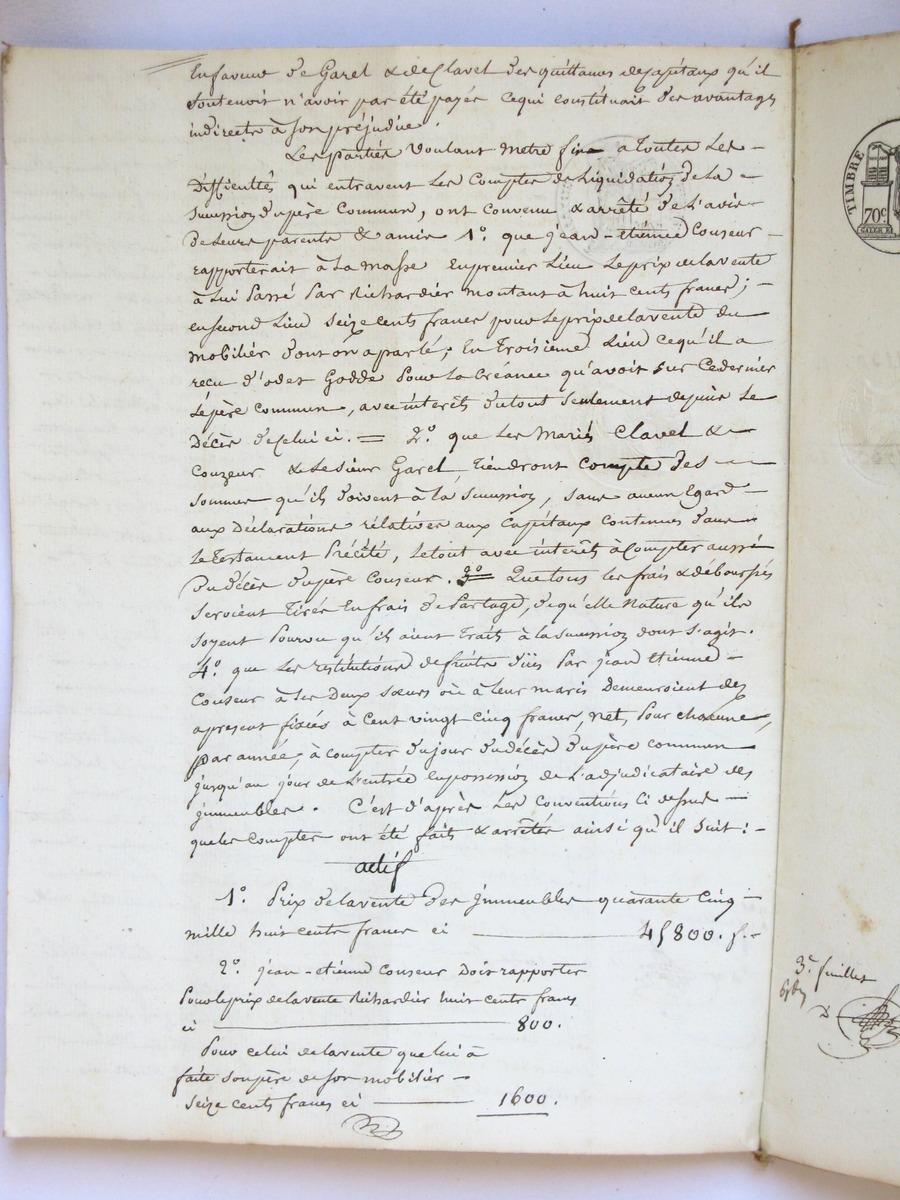 En faveur de Garel & de Clavel des quittances de capitaux qu'il
soutenoit n'avoir pas été payés ce qui constituait des avantages
indirects à son préjudice.
Les parties voulant metre fin a toutes les
difficultés qui entravent les comptes de liquidation de la
succession du père commun, ont convenu & arrêté de l'avis
de leurs parents & amis 1.º que jean-etienne Couseur
rapporterait à la masse en premier lieu le prix de la vente
à lui passé par Richardier montant à huit cents francs;
en second lieu seize cents francs pour le prix de la vente du
mobilier dont on a parlé; en troisième lieu ce qu'il a
recu d'odet Godde pour la créance qu'avoit sur ce dernier
le père commun, avec interêts du tout seulement depuis le
décès de celui ci. = 2.º que les mariés Clavel &
Couzeur & le sieur Garel tiendront compte des
sommes qu'ils doivent à la succession, sans aucun egard
aux déclarations rélatives aux capitaux contenues dans
le testament précité, le tout avec interêts à compter aussi
du décès du père Couseur. 3º Que tous les frais & déboursés
seroient tirés en frais de partage, de qu'elle nature qu'ils
soyent pourvu qu'ils aient trait à la succession dont s'agit.
4.º que les restitutions de fruits dûs par jean etienne
Couseur à ses deux sœurs où à leur maris demeuroient dez
apresent fixées à cent vingt cinq francs, net, pour chacune,
par année, à compter du jour du décès du père commun
jusqu'au jour de l'entrée en possession de l'adjudicataire des
jmmeubles. C'est d'après les conventions ci dessus
que les comptes ont été faits & arrêtés ainsi qu'il suit:
actif
1.º Prix de la vente des jmmeubles quarante cinq
mille huit cents francs ci 45800. f.
2.º jean-etienne Couseur doit rapporter
pour le prix de la vente Richardier huit cents francs
ci 800.
Pour celui de la vente que lui à
faite son père de son mobilier
seize cents francs ci 1600.
TIMBRE
70c
3.e feuillet